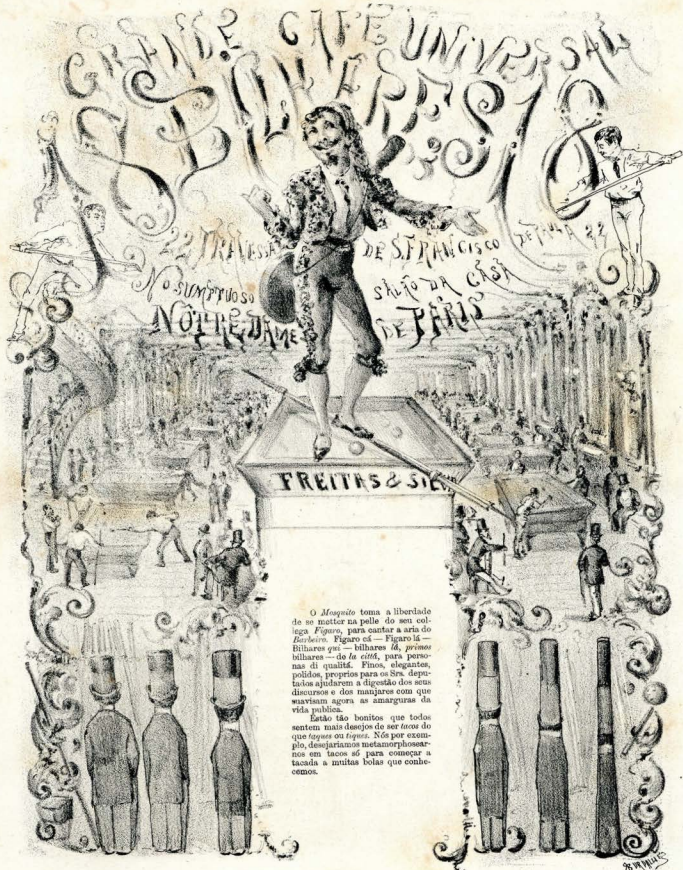 GRANDE CAFÉ UNIVERSAL
18 BILHARES 18
22 TRAVESSA DE S. FRANCISCO DE PAULA 22
NO SUMPTUOSO SALÃO DA CASA
NOTRE DAME DE PARIS
FREITAS & SILVA
O Mosquito toma a liberdade
de se metter na pelle do seu col-
lega Figaro, para cantar a aria do
Barbeiro. Figaro cá — Figaro lá —
Bilhares qui — bilhares lá, primos
bilhares — de la città, para perso-
nas di qualitá. Finos, elegantes,
polidos, proprios para os Srs. depu-
tados ajudarem a digestão dos seus
discursos e dos manjares com que
suavisam agora as amarguras da
vida publica.
Estão tão bonitos que todos
sentem mais desejos de ser tacos do
que taques ou tiques. Nós por exem-
plo, desejariamos metamorphosear-
nos em tacos só para começar a
tacada a muitas bolas que conhe-
cemos.